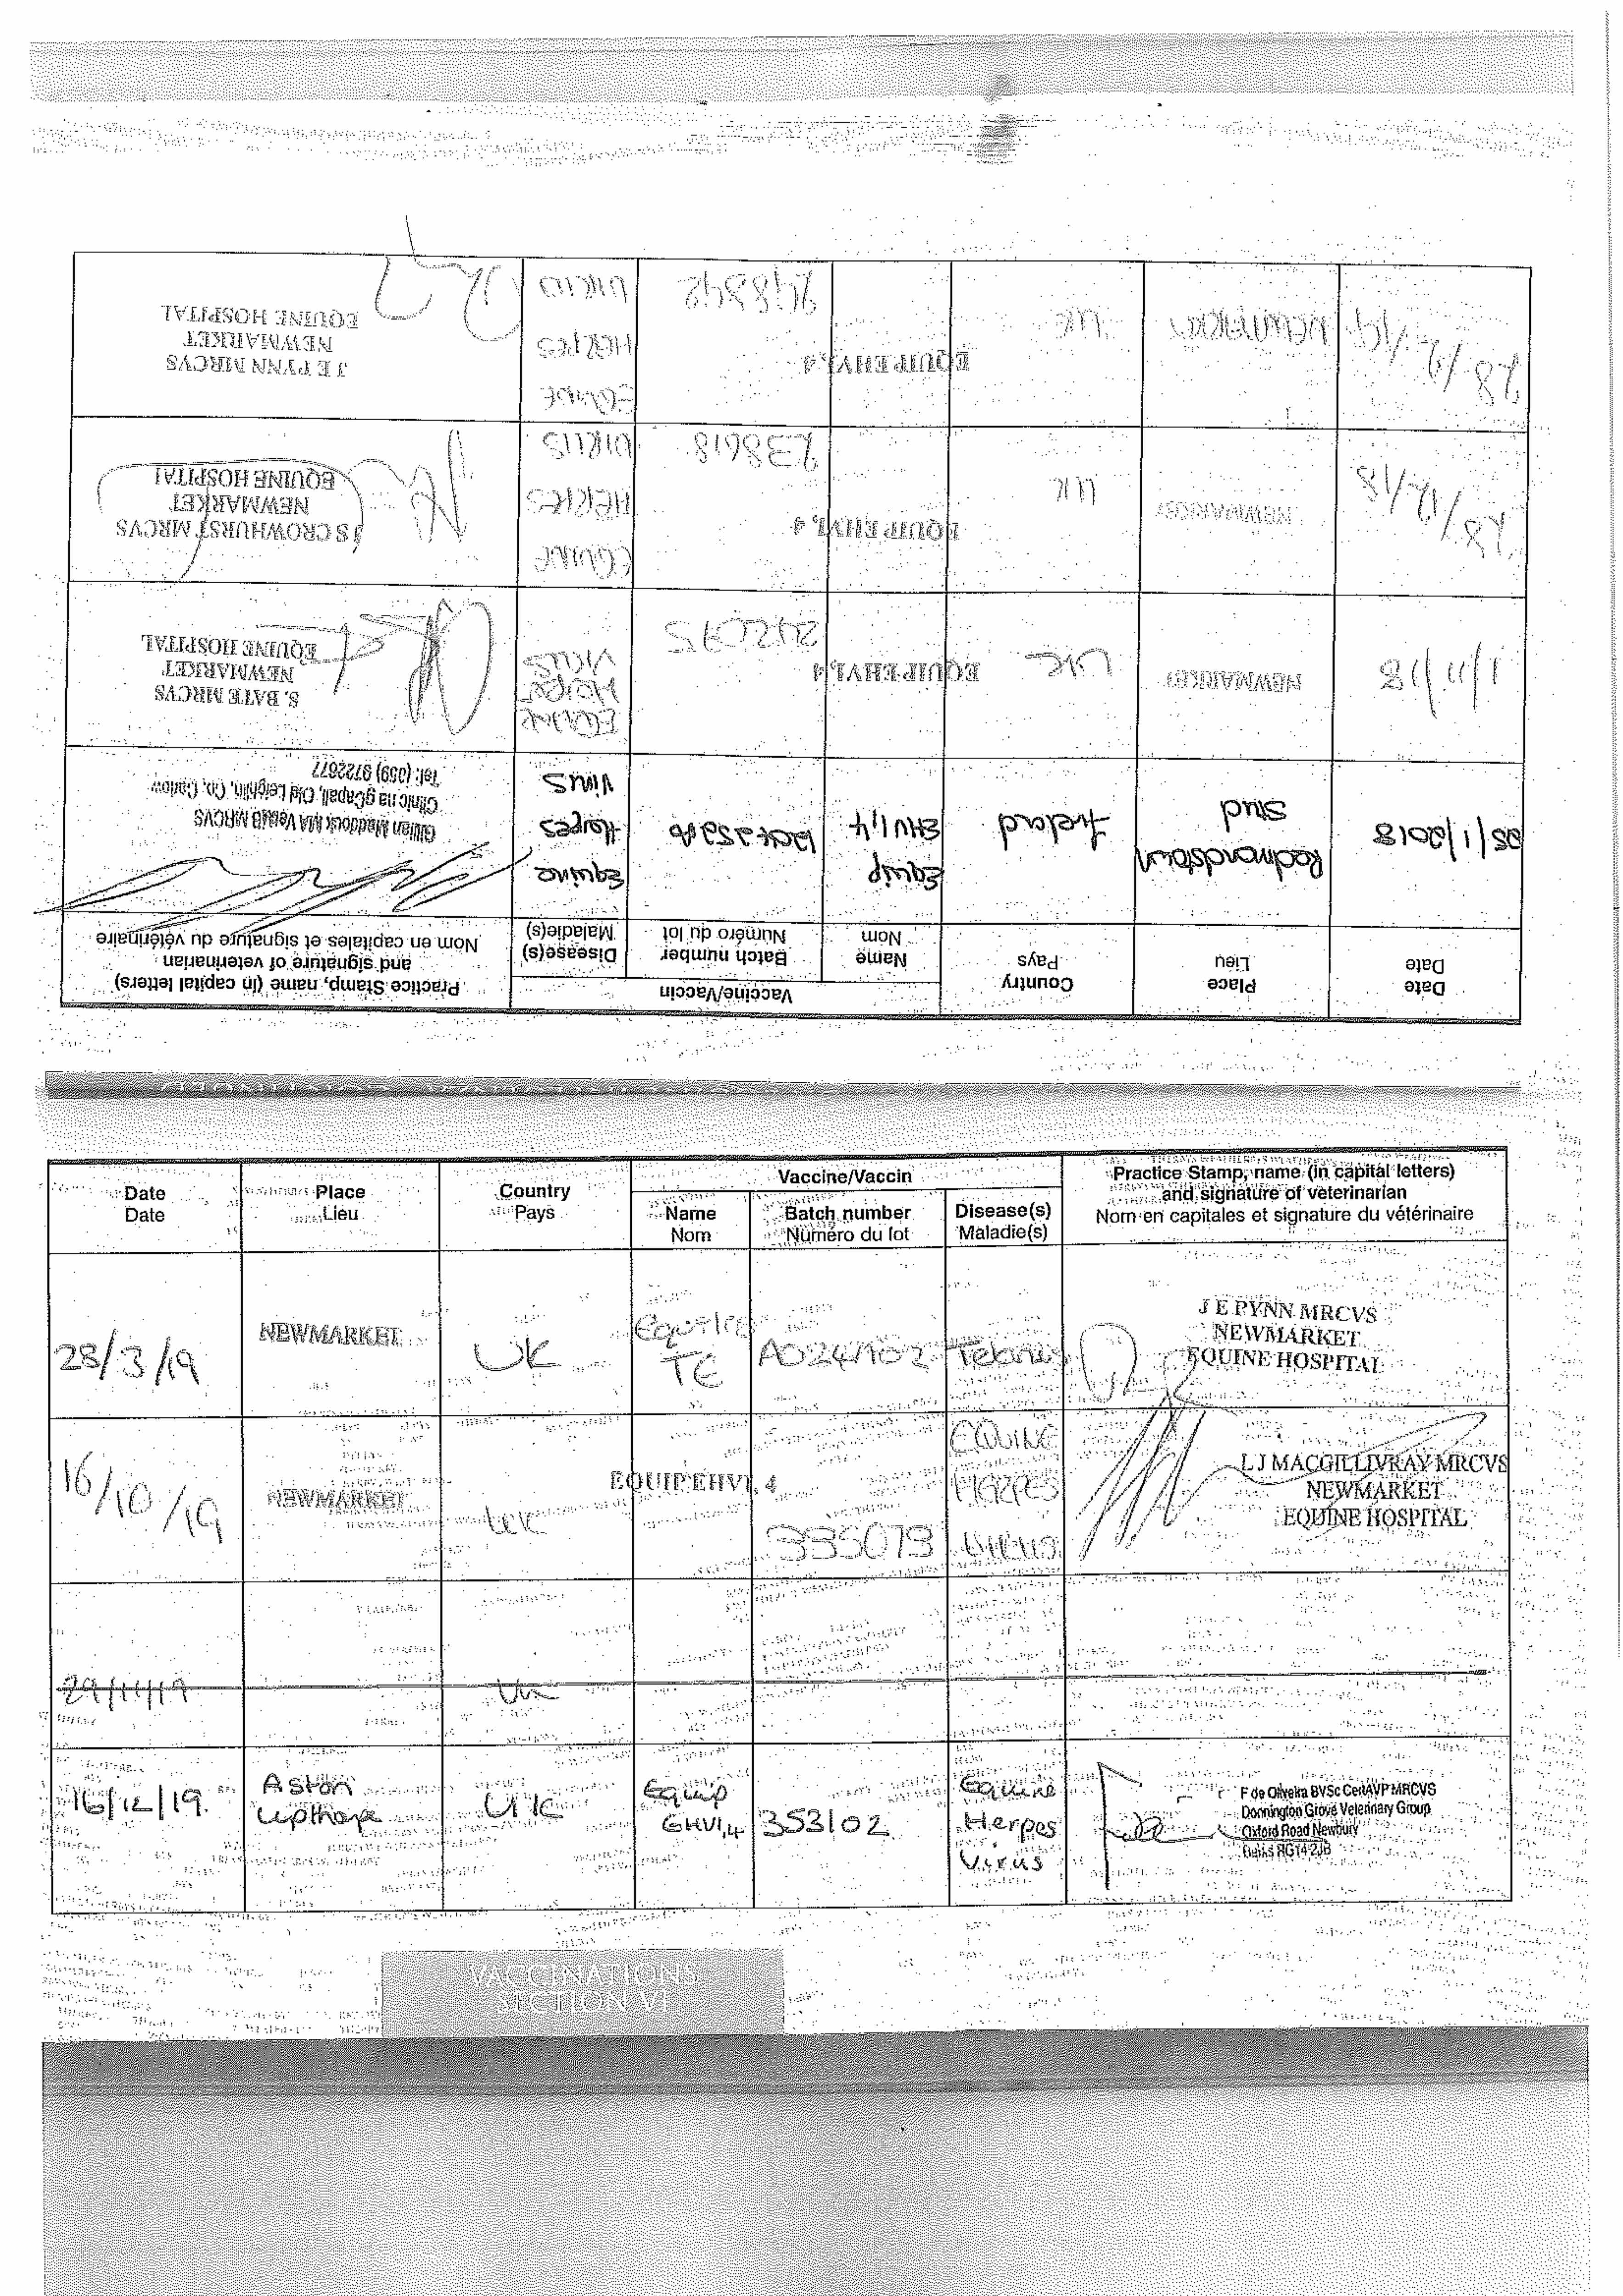 Date
Date
Place
Lieu
Country
Pays
Vaccine/Vaccin
Name
Nom
Batch number
Numéro du lot
Disease(s)
Maladie(s)
Practice Stamp, name (in capital letters)
and signature of veterinarian
Nom en capitales et signature du vétérinaire
25/1/2018
Redmondstown
Stud
Ireland
Equip
EHV1,4
Equine
Herpes
Virus
Gillian Maddock MA VetMB MRCVS
Clinic na gCapall, Old Leighlin, Co. Carlow
1/11/18
NEWMARKET
UK
EQUIP EHV1,4
EQUINE
HERPES
VIRUS
S. BATE MRCVS
NEWMARKET
EQUINE HOSPITAL
28/12/18
NEWMARKET
UK
EQUIP EHV1,4
238618
EQUINE
HERPES
VIRUS
J S CROWHURST MRCVS
NEWMARKET
EQUINE HOSPITAL
NEWMARKET
UK
EQUIP EHV1,4
EQUINE
HERPES
VIRUS
J E PYNN MRCVS
NEWMARKET
EQUINE HOSPITAL
Date
Date
Place
Lieu
Country
Pays
Vaccine/Vaccin
Name
Nom
Batch number
Numéro du lot
Disease(s)
Maladie(s)
Practice Stamp, name (in capital letters)
and signature of veterinarian
Nom en capitales et signature du vétérinaire
28/3/19
NEWMARKET
UK
TE
Tetanus
J E PYNN MRCVS
NEWMARKET
EQUINE HOSPITAL
16/10/19
NEWMARKET
UK
EQUIP EHV1,4
335073
EQUINE
HERPES
VIRUS
L J MACGILLIVRAY MRCVS
NEWMARKET
EQUINE HOSPITAL
29/11/19
UK
16/12/19.
Aston
Upthorpe
UK
Equip
EHV1,4
353102
Equine
Herpes
Virus
F de Oliveira BVSc CertAVP MRCVS
Donnington Grove Veterinary Group
Oxford Road Newbury
VACCINATIONS
SECTION VI